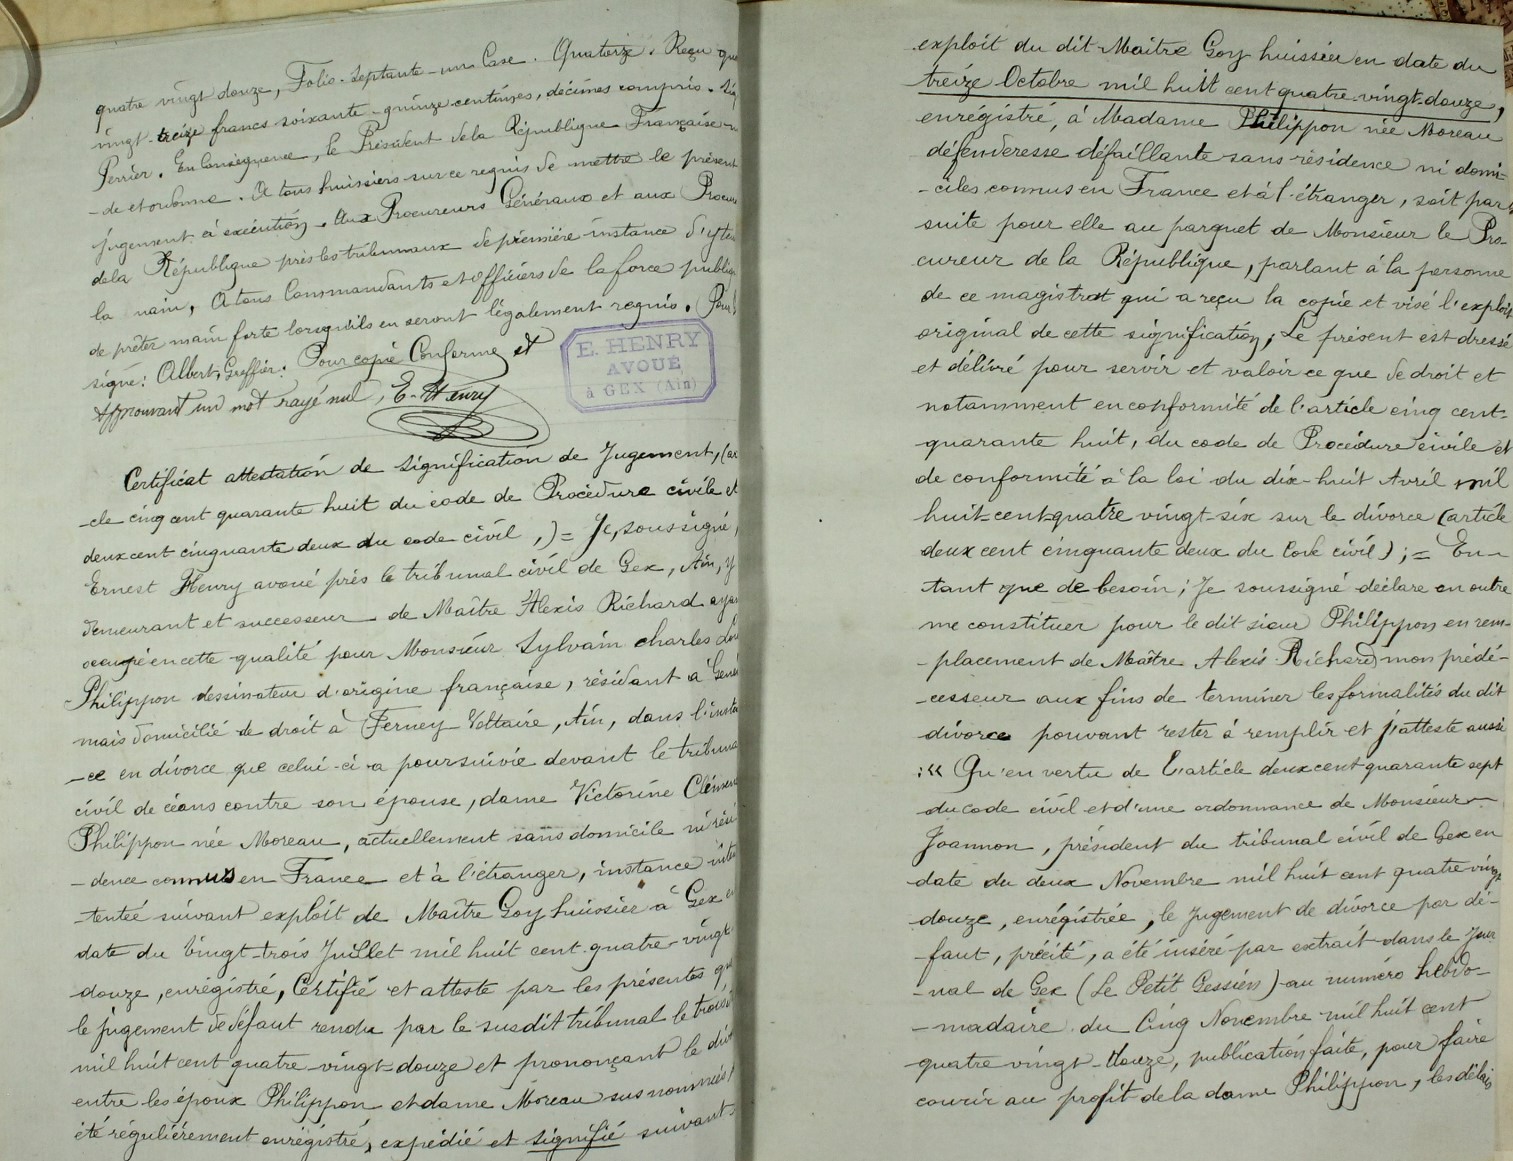 quatre vingt douze, Folio septante-un Case Quatorze. Reçu
vingt-treize francs soixante-quinze centimes, décimes compris.
Perrier. En Conséquence, le Président de la République Française
-de et ordonne. A tous huissiers sur ce requis de mettre le présent
jugement à exécution. Aux Procureurs Généraux et aux Procur
de la République près les tribunaux de première instance d'y ten
la main, A tous Commandants et officiers de la force publiq
de prêter main forte lorsqu'ils en seront légalement requis. Pour
signé: Albert, Greffier. Pour copie Conforme et
Approuvant un mot rayé nul, E. Henry
E. HENRY
AVOUÉ
à GEX (Ain)
Certificat attestation de signification de Jugement, (ar
-cle cinq cent quarante huit du code de Procédure civile et
deux cent cinquante deux du code civil,) = Je, soussigné,
Ernest Henry avoué près le tribunal civil de Gex, Ain, y
demeurant et successeur de Maître Alexis Richard aya
occupé en cette qualité pour Monsieur Sylvain charles
-Philippon dessinateur d'origine française, résidant à Genè
mais domicilié de droit à Ferney Voltaire, Ain, dans l'insta
-ce en divorce que celui-ci a poursuivie devant le tribuna
civil de céans contre son épouse, dame Victorine Clémen
Philippon née Moreau, actuellement sans domicile ni rési
-dence connus en France et à l'étranger, instance
-tentée suivant exploit de Maître Goy huissier à Gex
date du Vingt-trois Juillet mil huit cent quatre-vingt
douze, enrégistré, Certifié et atteste par les présentes
le jugement de défaut rendu par le susdit tribunal le trois
mil huit cent quatre-vingt-douze et prononçant le div
entre les époux Philippon et dame Moreau sus nommés
été régulièrement enrégistré, expédié et signifié suivant
exploit du dit Maître Goy huissier en date du
treize Octobre mil huit cent quatre-vingt-douze,
enrégistré, à Madame Philippon née Moreau
défenderesse défaillante sans résidence ni domi-
-ciles connus en France et à l'étranger, soit par
suite pour elle au parquet de Monsieur le Pro-
cureur de la République, parlant à la personne
de ce magistrat qui a reçu la copie et visé l'exploit
original de cette signification; Le présent est dressé
et délivré pour servir et valoir ce que de droit et
notamment en conformité de l'article cinq cent-
quarante huit, du code de Procédure civile et
de conformité à la loi du dix-huit Avril mil
huit-cent-quatre vingt-six sur le divorce (article
deux cent cinquante deux du Code civil); = En-
tant que de besoin; Je soussigné déclare en outre
me constituer pour le dit sieur Philippon en rem-
-placement de Maître Alexis Richard mon prédé-
-cesseur aux fins de terminer les formalités du dit
divorce pouvant rester à remplir et j'atteste aussi
:« Qu'en vertu de L'article deux cent quarante sept
du code civil et d'une ordonnance de Monsieur
Joannon, président du tribunal civil de Gex en
date du deux Novembre mil huit cent quatre vingt
douze, enrégistrée, le jugement de divorce par dé-
-faut, précité, a été inséré par extrait dans le Jour
-nal de Gex (Le Petit Gessien) au numéro hebdo-
-madaire du Cinq Novembre mil huit cent
quatre vingt-douze, publication faite, pour faire
courir au profit de la dame Philippon, les délais